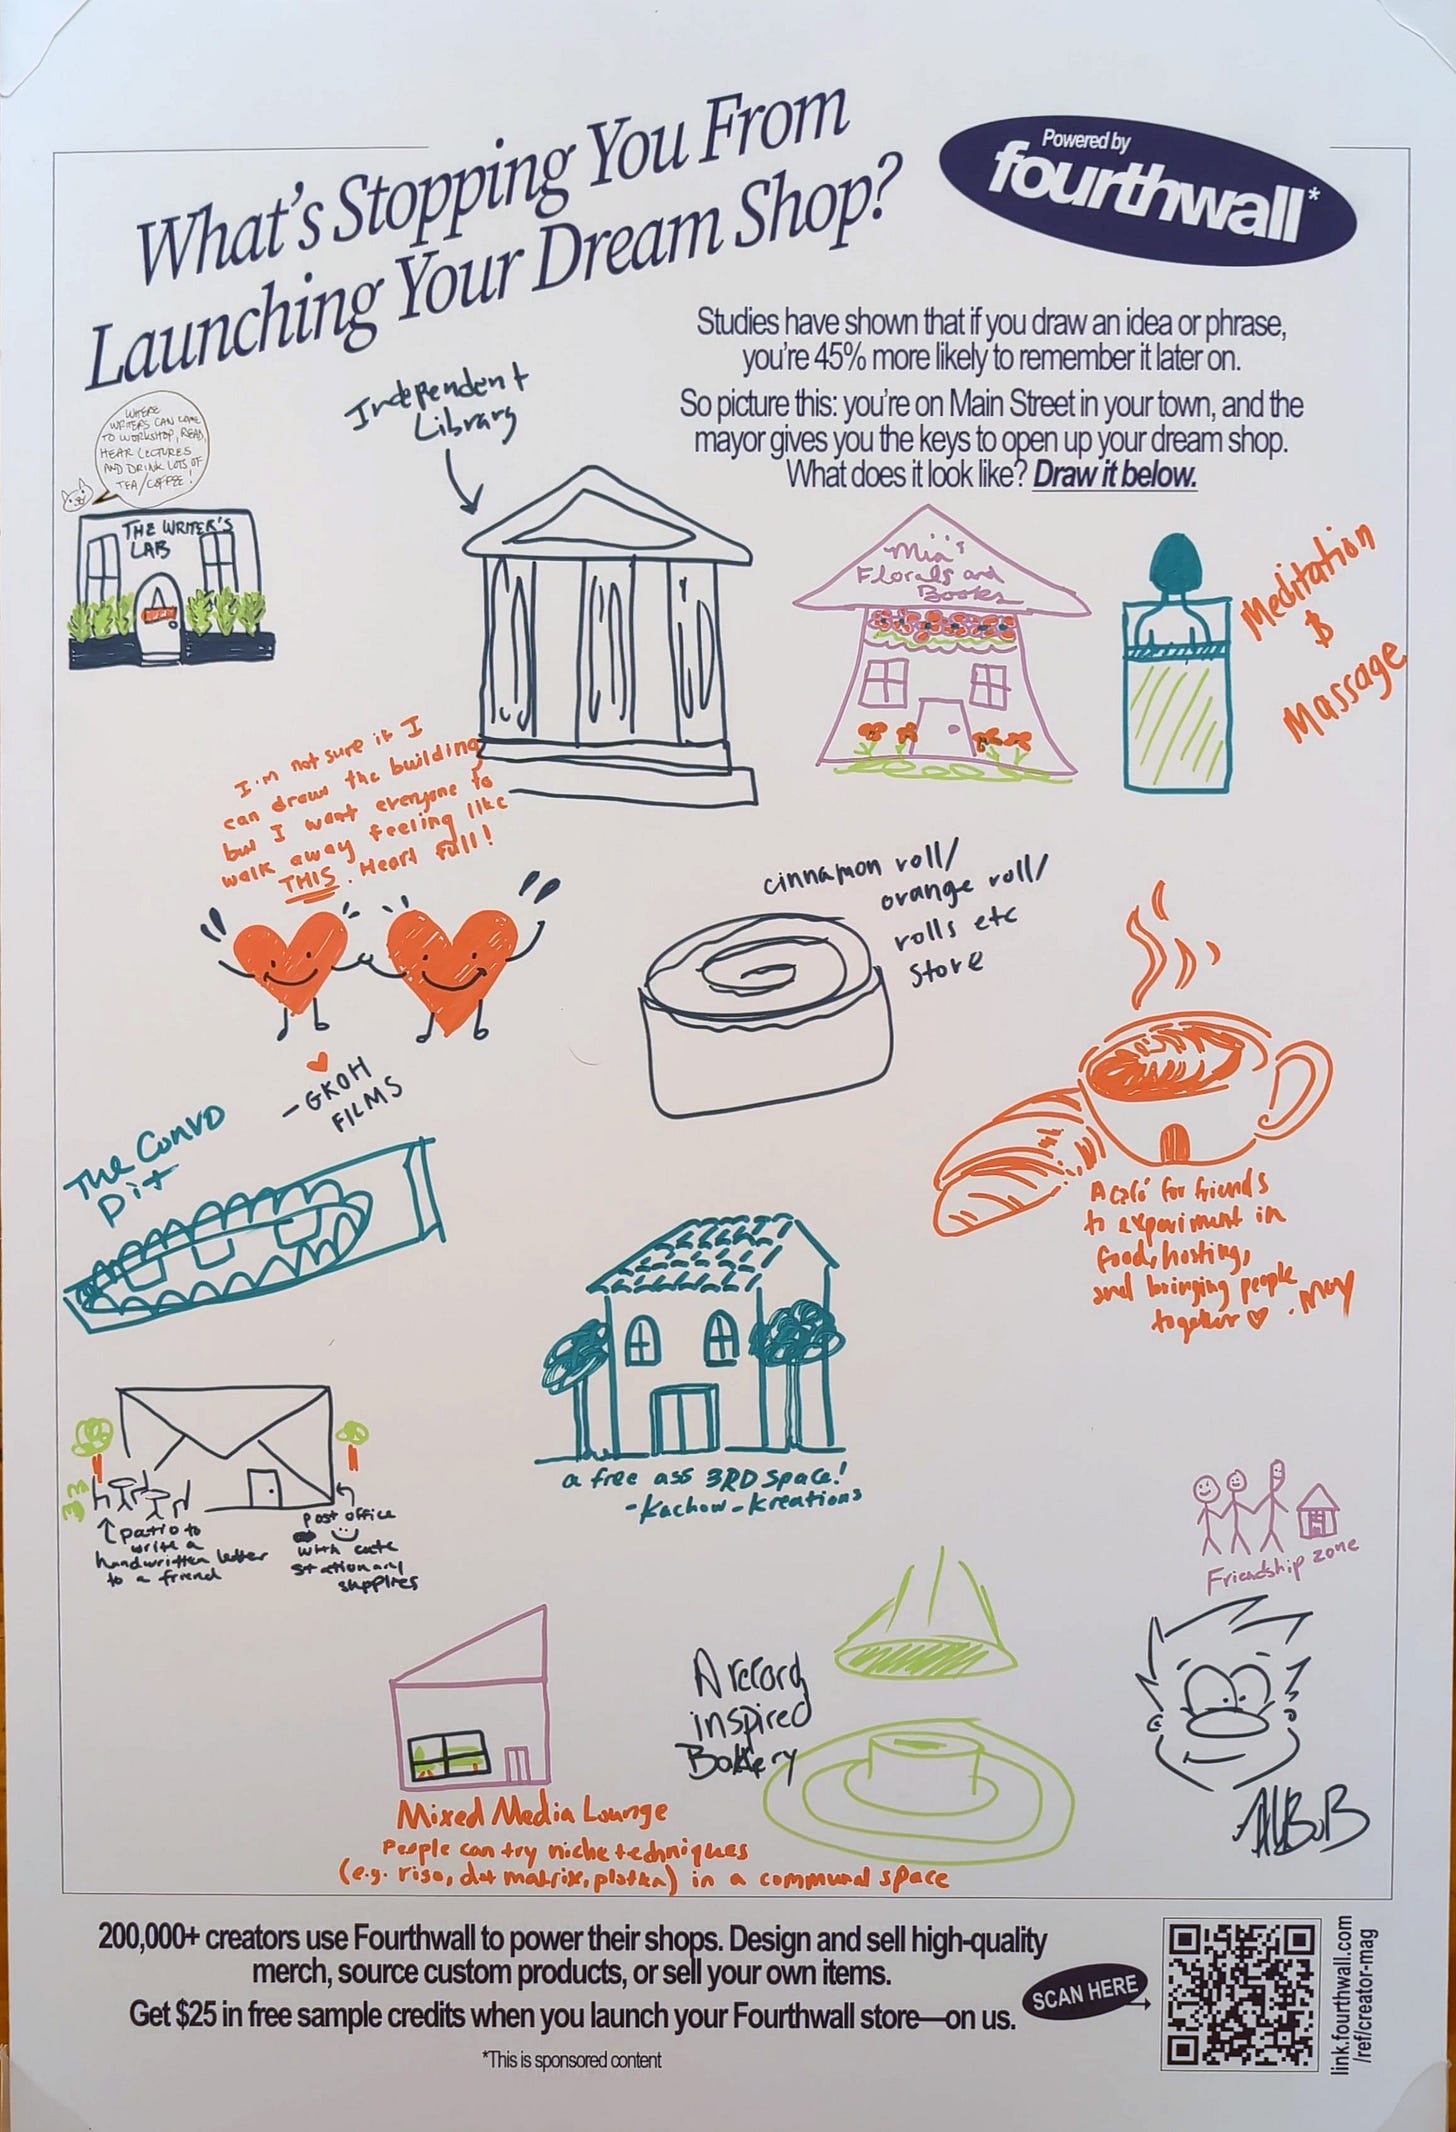 What's Stopping You From
Launching Your Dream Shop?
Powered by
fourthwall*
Studies have shown that if you draw an idea or phrase,
you're 45% more likely to remember it later on.
So picture this: you're on Main Street in your town, and the
mayor gives you the keys to open up your dream shop.
What does it look like? Draw it below.
WHERE
WRITERS CAN COME
TO WORKSHOP, READ,
HEAR LECTURES
AND DRINK LOTS OF
TEA/COFFEE!
THE WRITER'S
LAB
OPEN
Independent
Library
Mia's
Florals and
Books
Meditation
&
Massage
I'm not sure if I
can draw the building
but I want everyone to
walk away feeling like
THIS. Heart full!
- GKOH
FILMS
cinnamon roll/
orange roll/
rolls etc
store
The Convo
Pit
A café for friends
to experiment in
food, hosting,
and bringing people
together ♡ · May
a free ass 3RD space!
- Kachow - Kreations
↑ patio to
write a
handwritten letter
to a friend
post office
with cute
stationary
supplies
Friendship zone
A record
inspired
Bakery
Mixed Media Lounge
People can try niche techniques
(e.g. riso, dot matrix, plotka) in a communal space
200,000+ creators use Fourthwall to power their shops. Design and sell high-quality
merch, source custom products, or sell your own items.
Get $25 in free sample credits when you launch your Fourthwall store—on us.
*This is sponsored content
SCAN HERE
link.fourthwall.com
/ref/creator-mag